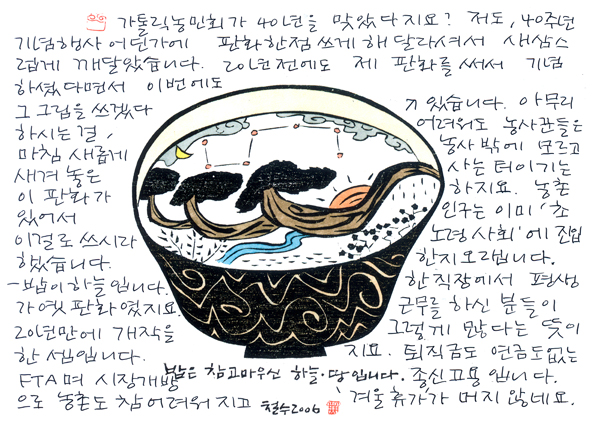 가톨릭농민회가 40년을 맞았다지요? 저도, 40주년
기념행사 어딘가에 판화한점 쓰게 해 달라셔서 새삼스
럽게 깨달았습니다. 20년전에도 제 판화를 써서 기념
하셨다면서 이번에도
그 그림을 쓰겠다
하시는 걸,
마침 새롭게
새겨 놓은
이 판화가
있어서
이걸로 쓰시라
했습니다.
-밥이 하늘입니다.
가 옛 판화였지요.
20년만에 개작을
한 셈입니다.
FTA며 시장개방
으로 농촌도 참 어려워 지고
ㅈ 있습니다. 아무리
어려워도 농사꾼들은
농사 밖에 모르고
사는 터이기는
하지요. 농촌
인구는 이미 '초
노령 사회'에 진입
한지 오랩니다.
한 직장에서 평생
근무를 하신 분들이
그렇게 많다는 뜻이
지요. 퇴직금도 연금도없는
종신고용 입니다.
겨울 휴가가 머지 않네요.
밥은 참 고마우신 하늘·땅입니다.
철수2006